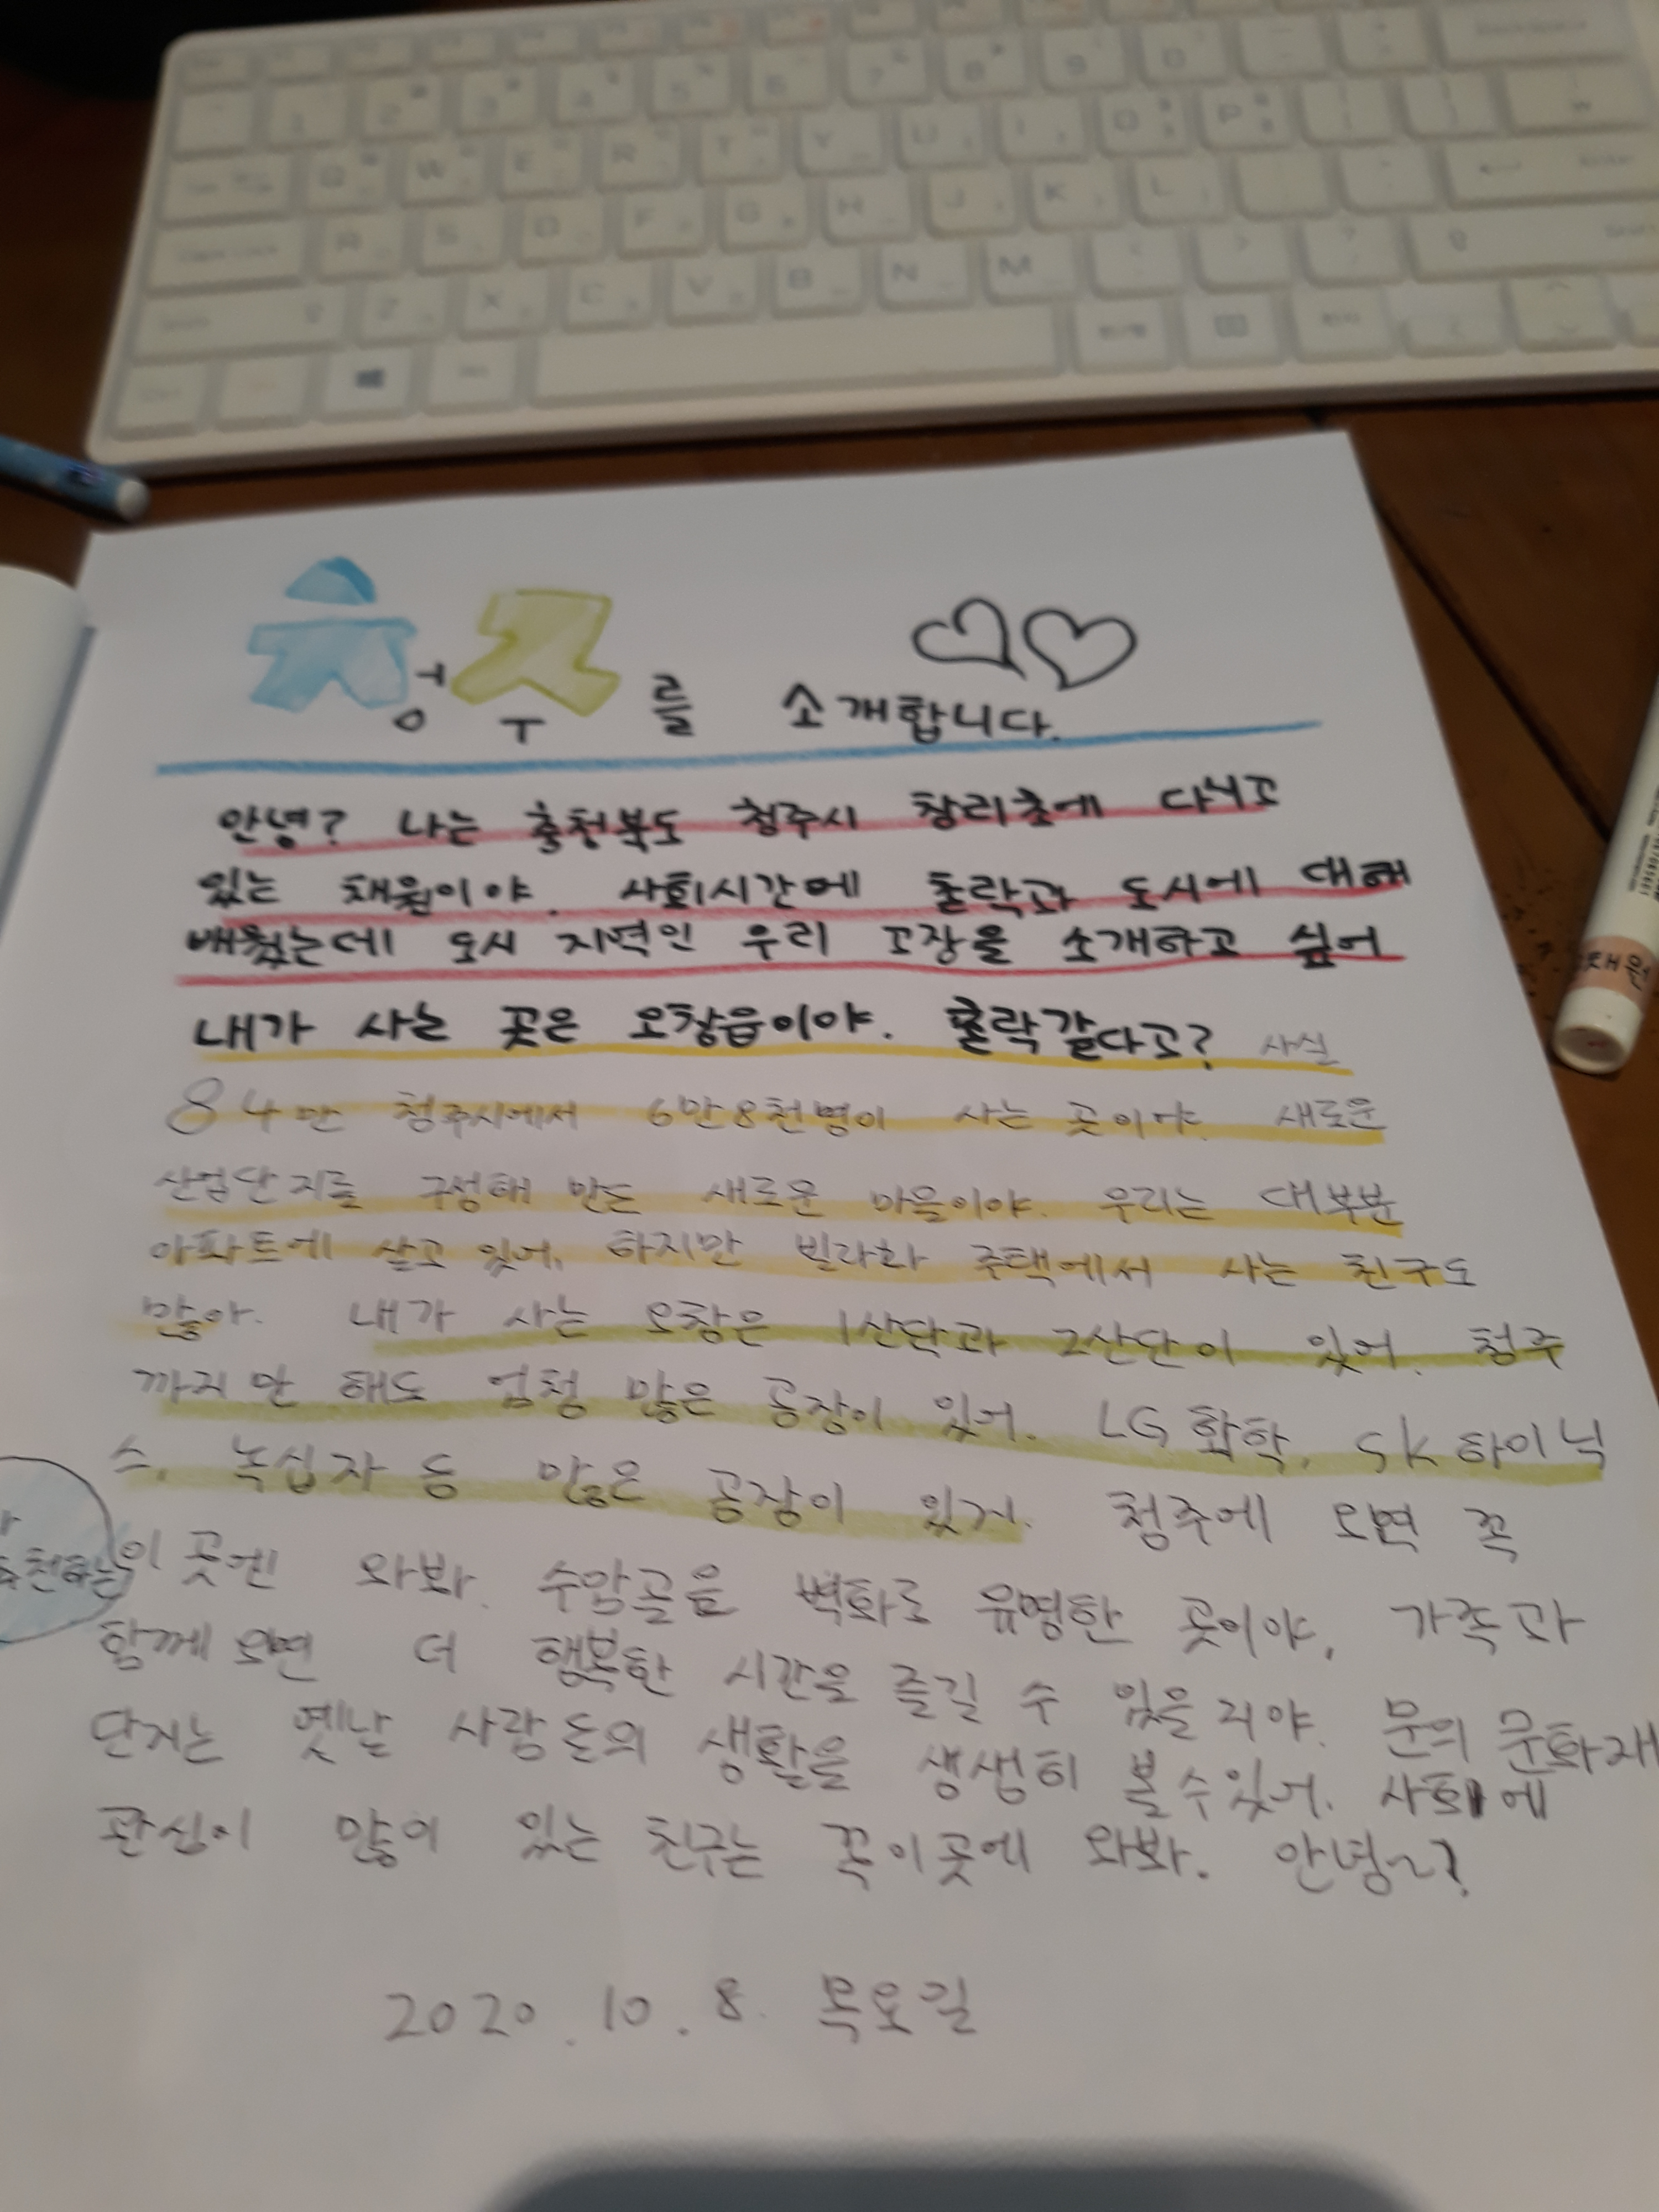 청주를 소개합니다.
안녕? 나는 충청북도 청주시 창리초에 다니고
있는 채원이야. 사회시간에 촌락과 도시에 대해
배웠는데 도시 지역인 우리 고장을 소개하고 싶어
내가 사는 곳은 오창읍이야. 촌락같다고? 사실
84만 청주시에서 6만8천명이 사는 곳이야. 새로운
산업단지를 구성해 만든 새로운 마을이야. 우리는 대부분
아파트에 살고 있어. 하지만 빌라와 주택에서 사는 친구도
많아. 내가 사는 오창은 1산단과 2산단이 있어. 청주
까지만 해도 엄청 많은 공장이 있어. LG화학, SK하이닉
스, 녹십자 등 많은 공장이 있거. 청주에 오면 꼭
추천하는
이 곳엔 와봐. 수암골은 벽화로 유명한 곳이야, 가족과
함께 오면 더 행복한 시간을 즐길 수 있을거야. 문의 문화재
단지는 옛날 사람들의 생활을 생생히 볼수있어. 사회에
관심이 많이 있는 친구는 꼭이곳에 와봐. 안녕~?
2020. 10. 8. 목요일
채원